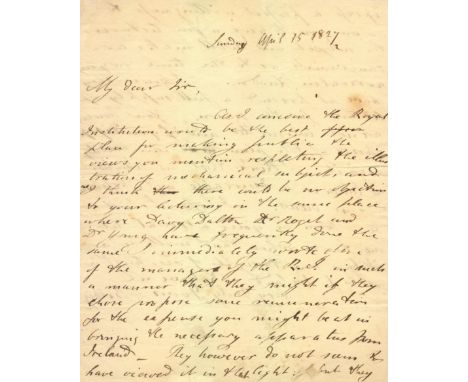 Sunday April 15 1827
My dear Sir,
As I conceive the Royal
Institution would be the best
plan for making public the
views you mention respecting the illus
tration of mechanical subjects and
as I think there could be no objection
to your lecturing in the same place
where Davy Dalton Dr Roget and
Dr Ure have frequently done the
same I immediately wrote to one
of the managers of the R.I. in such
a manner that they might if they
chose propose some remuneration
for the expense you might be at in
bringing the necessary apparatus from
Ireland — They however do not seem to
have viewed it in that light; but they